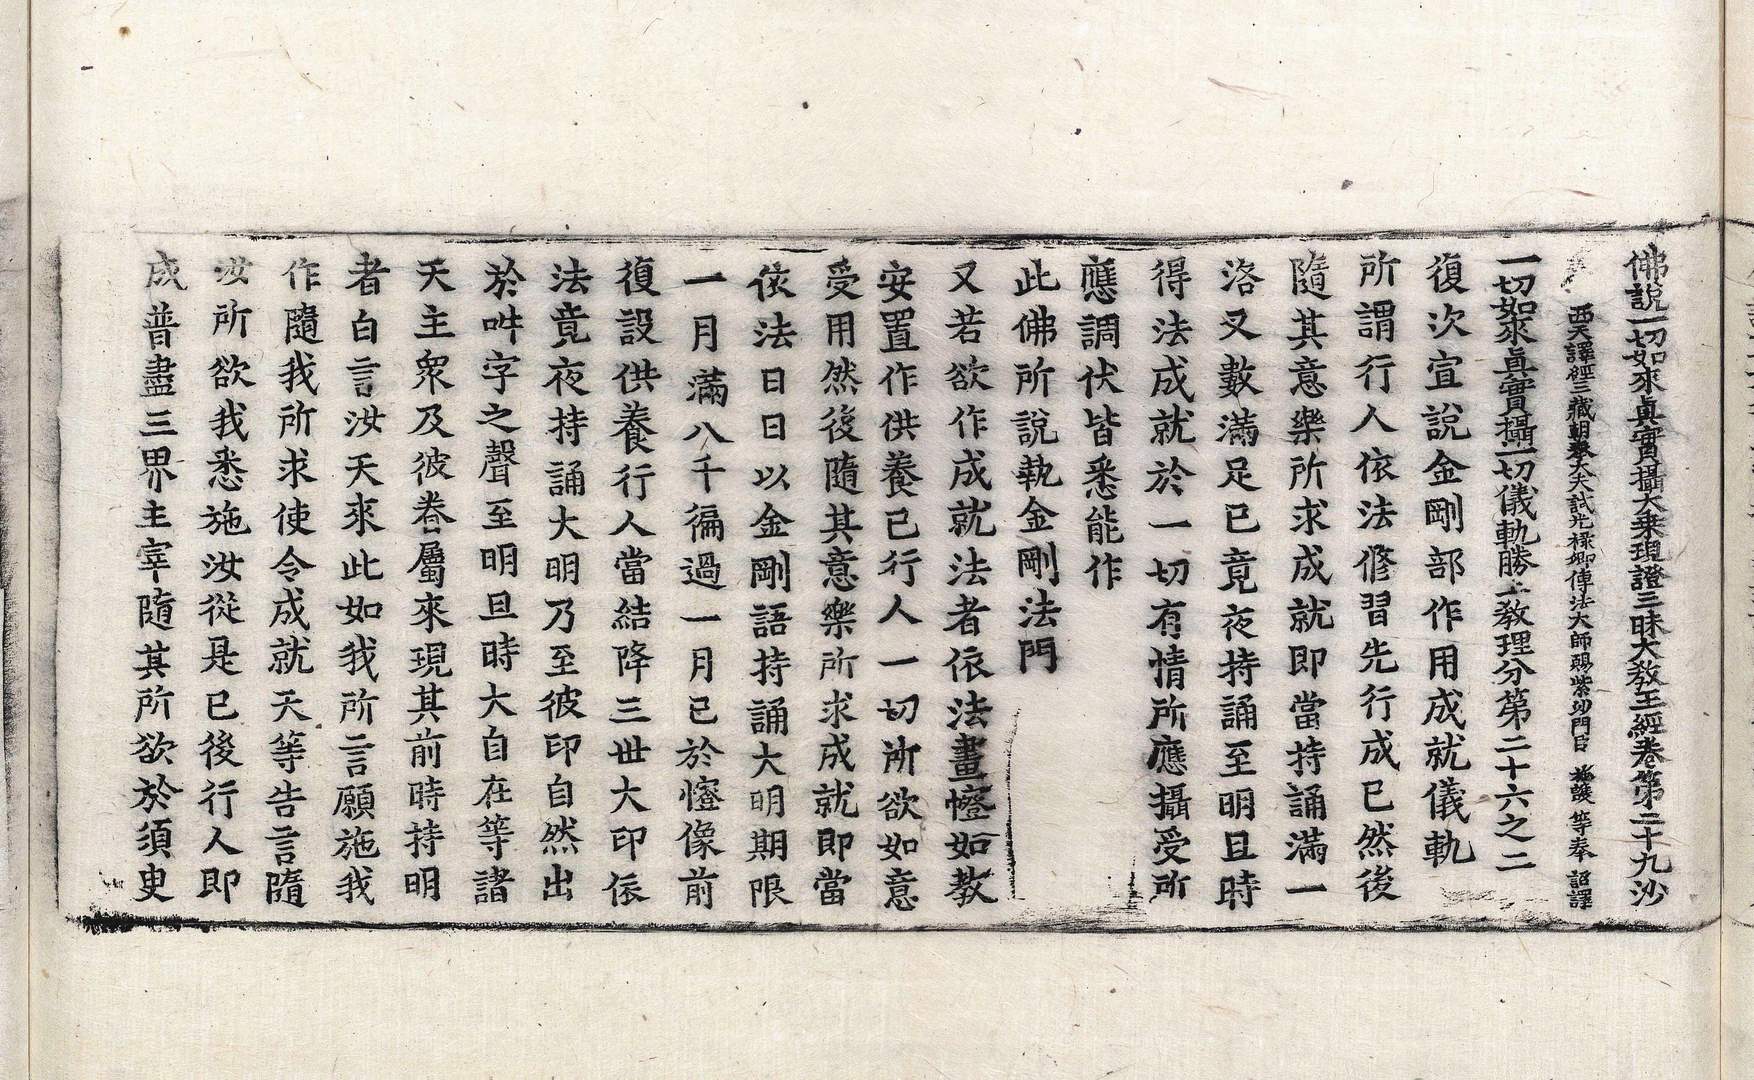 佛說一切如來真實攝大乗現證三昧大教王經卷第二十九沙
西天譯經三藏朝奉大夫試光祿卿傳法大師賜紫沙門臣 施護 等奉 詔譯
一切如來眞實攝一切儀軌勝上教理分第二十六之二
復次宣說金剛部作用成就儀軌
所謂行人依法修習先行成已然後
隨其意樂所求成就即當持誦滿一
洛叉數滿足已竟夜持誦至明旦時
得法成就於一切有情所應攝受所
應調伏皆悉能作
此佛所說執金剛法門
又若欲作成就法者依法畫㡧如教
安置作供養已行人一切所欲如意
受用然後隨其意樂所求成就即當
依法日日以金剛語持誦大明期限
一月滿八千徧過一月已於㡧像前
復設供養行人當結降三世大印依
法竟夜持誦大明乃至彼印自然出
於吽字之聲至明旦時大自在等諸
天主衆及彼眷屬來現其前時持明
者白言汝天來此如我所言願施我
作隨我所求使令成就天等告言隨
汝所欲我悉施汝從是已後行人即
成普盡三界主宰隨其所欲於須臾